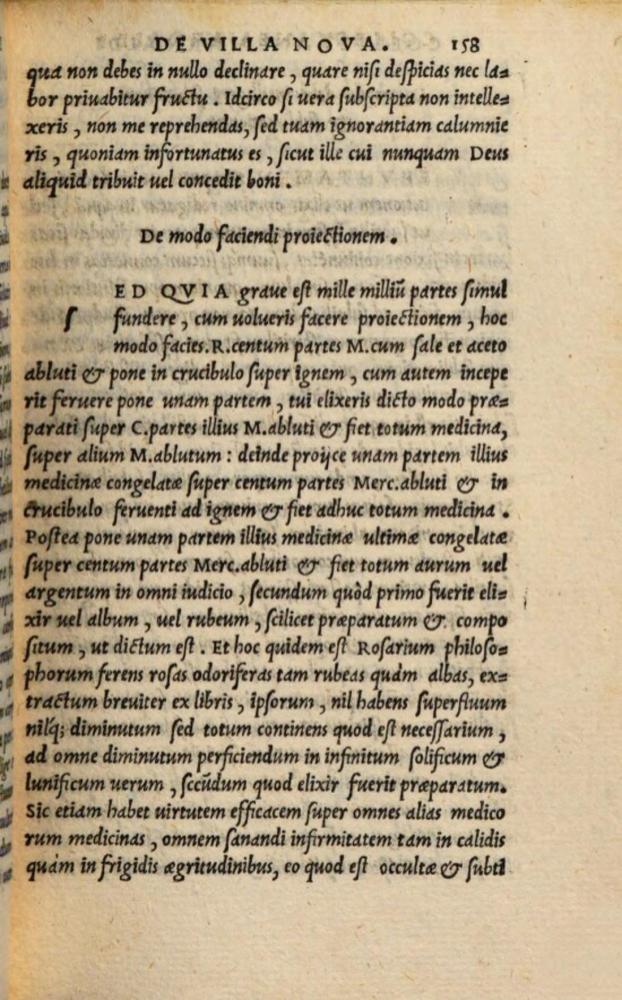 DE VILLA NOVA. 158
qua non debes in nullo declinare, quare nisi despicias nec la=
bor priuabitur fructu. Idcirco si uera subscripta non intelle=
xeris, non me reprehendas, sed tuam ignorantiam calumnie
ris, quoniam infortunatus es, sicut ille cui nunquam Deus
aliquid tribuit uel concedit boni.
De modo faciendi proiectionem.
SED QVIA graue est mille milliū partes simul
fundere, cum uolueris facere proiectionem, hoc
modo facies. R. centum partes M. cum sale et aceto
abluti & pone in crucibulo super ignem, cum autem incepe
rit feruere pone unam partem, tui elixeris dicto modo præ=
parati super C. partes illius M. abluti & fiet totum medicina,
super alium M. ablutum: deinde proijce unam partem illius
medicinæ congelatæ super centum partes Merc. abluti & in
crucibulo feruenti ad ignem & fiet adhuc totum medicina.
Postea pone unam partem illius medicinæ ultimæ congelatæ
super centum partes Merc. abluti & fiet totum aurum uel
argentum in omni iudicio, secundum quòd primo fuerit eli=
xir uel album, uel rubeum, scilicet præparatum & compo
situm, ut dictum est. Et hoc quidem est Rosarium philoso=
phorum ferens rosas odoriferas tam rubeas quàm albas, ex=
tractum breuiter ex libris, ipsorum, nil habens superfluum
nilq; diminutum sed totum continens quod est necessarium,
ad omne diminutum perficiendum in infinitum solificum &
lunificum uerum, secūdum quod elixir fuerit præparatum.
Sic etiam habet uirtutem efficacem super omnes alias medico
rum medicinas, omnem sanandi infirmitatem tam in calidis
quàm in frigidis ægritudinibus, eo quod est occultæ & subti